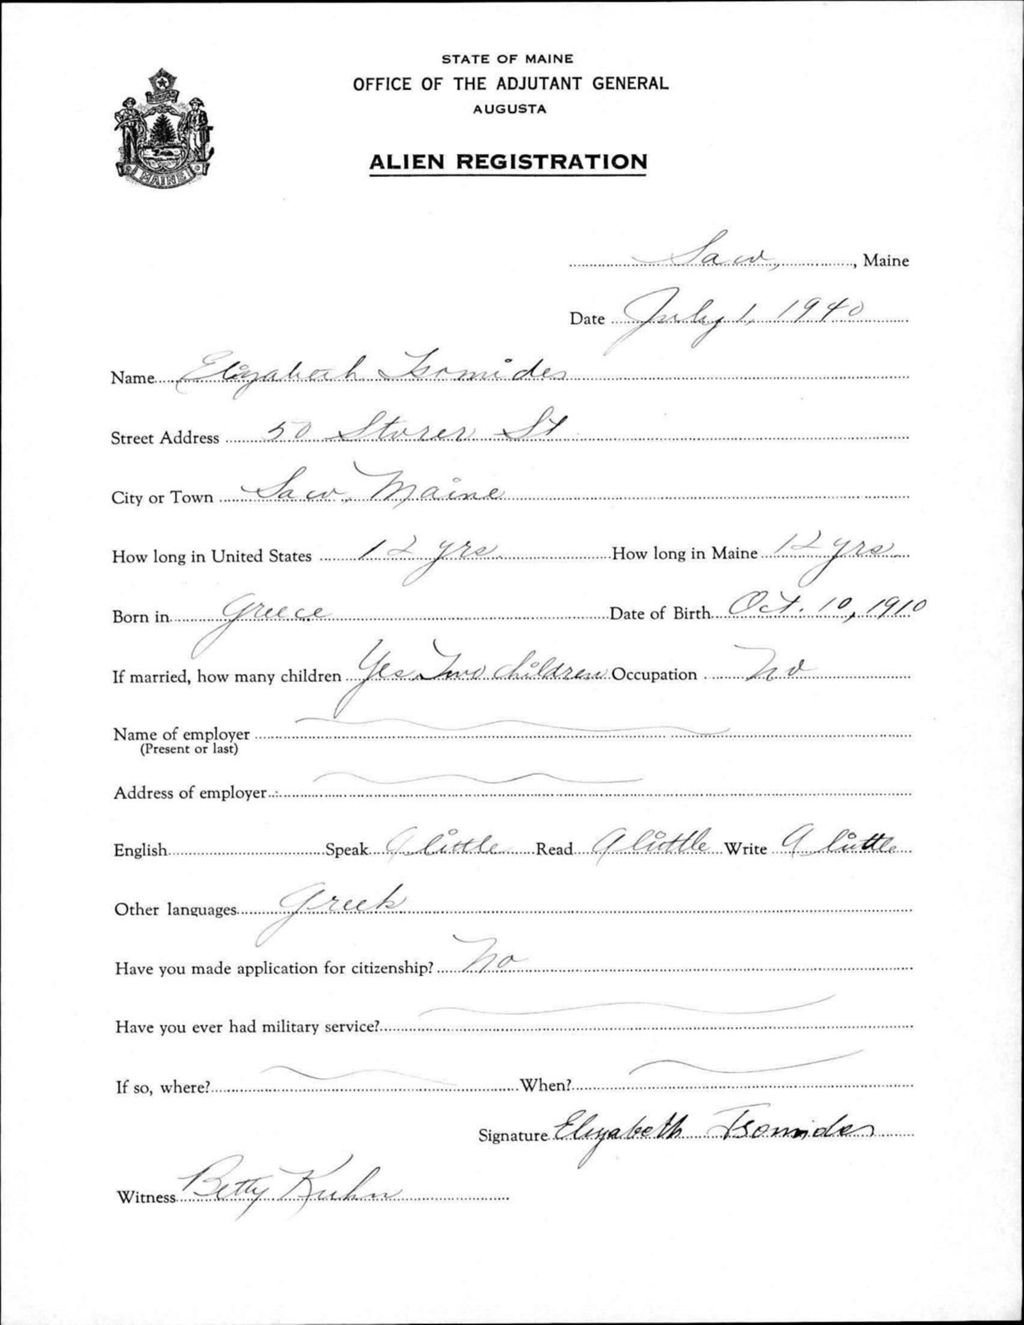 STATE OF MAINE
OFFICE OF THE ADJUTANT GENERAL
AUGUSTA
ALIEN REGISTRATION
MAINE
Saco, , Maine
Date July 1, 1940
Name Elizabeth Tsomides
Street Address 50 Storer St
City or Town Saco, Maine
How long in United States 12 yrs How long in Maine 12 yrs
Born in Greece Date of Birth Oct. 10, 1910
If married, how many children Yes Two children Occupation No
Name of employer
(Present or last)
Address of employer
English Speak A little Read A little Write A little
Other languages Greek
Have you made application for citizenship? No
Have you ever had military service?
If so, where? When?
Signature Elizabeth Tsomides
Witness Betty Kuhn